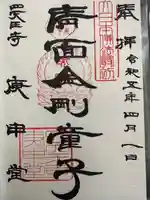 奉拝 令和五年四月 日
青面金剛童子
四天王寺 庚申堂